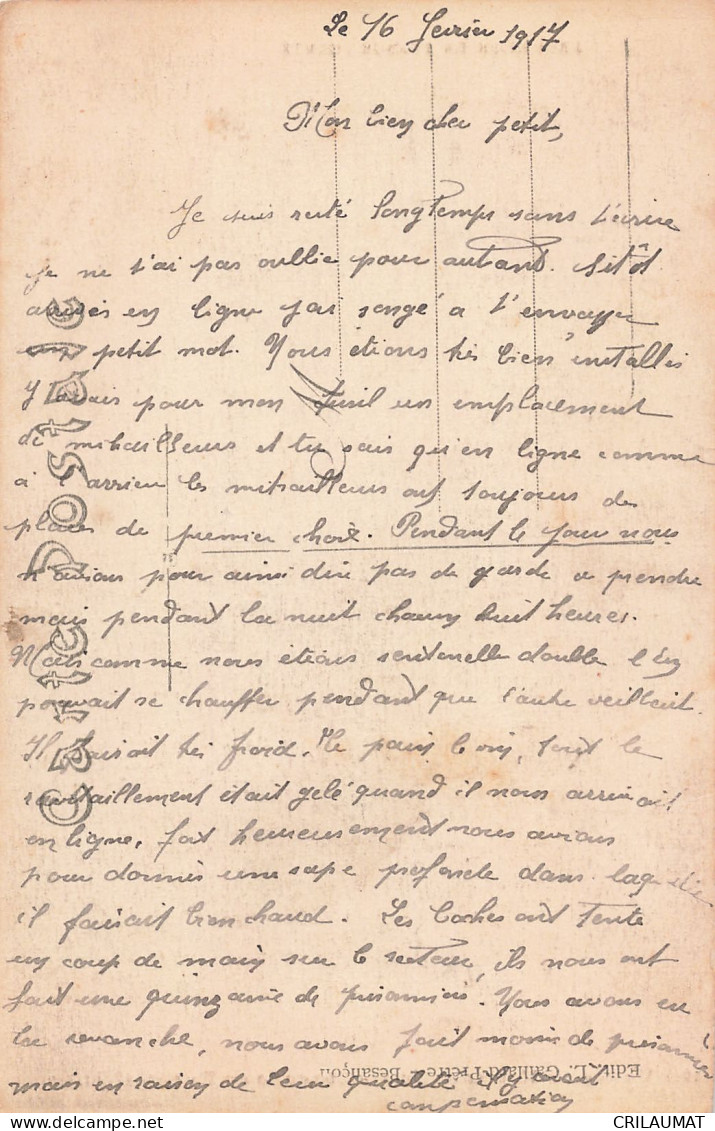 Le 16 fevrier 1917
Mon bien cher petit,
Je suis resté longtemps sans t'écrire
je ne t'ai pas oublié pour autant. Sitôt
arrivés en ligne j'ai songé a t'envoyer
un petit mot. Nous étions très bien installés
J'avais pour mon fusil un emplacement
de mitrailleurs et tu sais qu'en ligne comme
à l'arrière les mitrailleurs ont toujours des
places de premier choix. Pendant le jour nous
n'avions pour ainsi dire pas de garde a prendre
mais pendant la nuit chacun huit heures.
Mais comme nous étions sentinelle double l'un
pouvait se chauffer pendant que l'autre veillait.
Il faisait très froid. Le pain le vin, tout le
ravitaillement était gelé quand il nous arrivait
en ligne, fort heureusement nous avions
pour dormir une sape profonde dans laquelle
il faisait bien chaud. Les boches ont tenté
un coup de main sur le secteur, ils nous ont
fait une quinzaine de prisonniers. Nous avons eu
la revanche, nous avons fait moins de prisonniers
mais en raison de leur qualité il y avait
compensation
Carte Postale
Edit. L. Gaillard-Prêtre, Besançon
CRILAUMAT